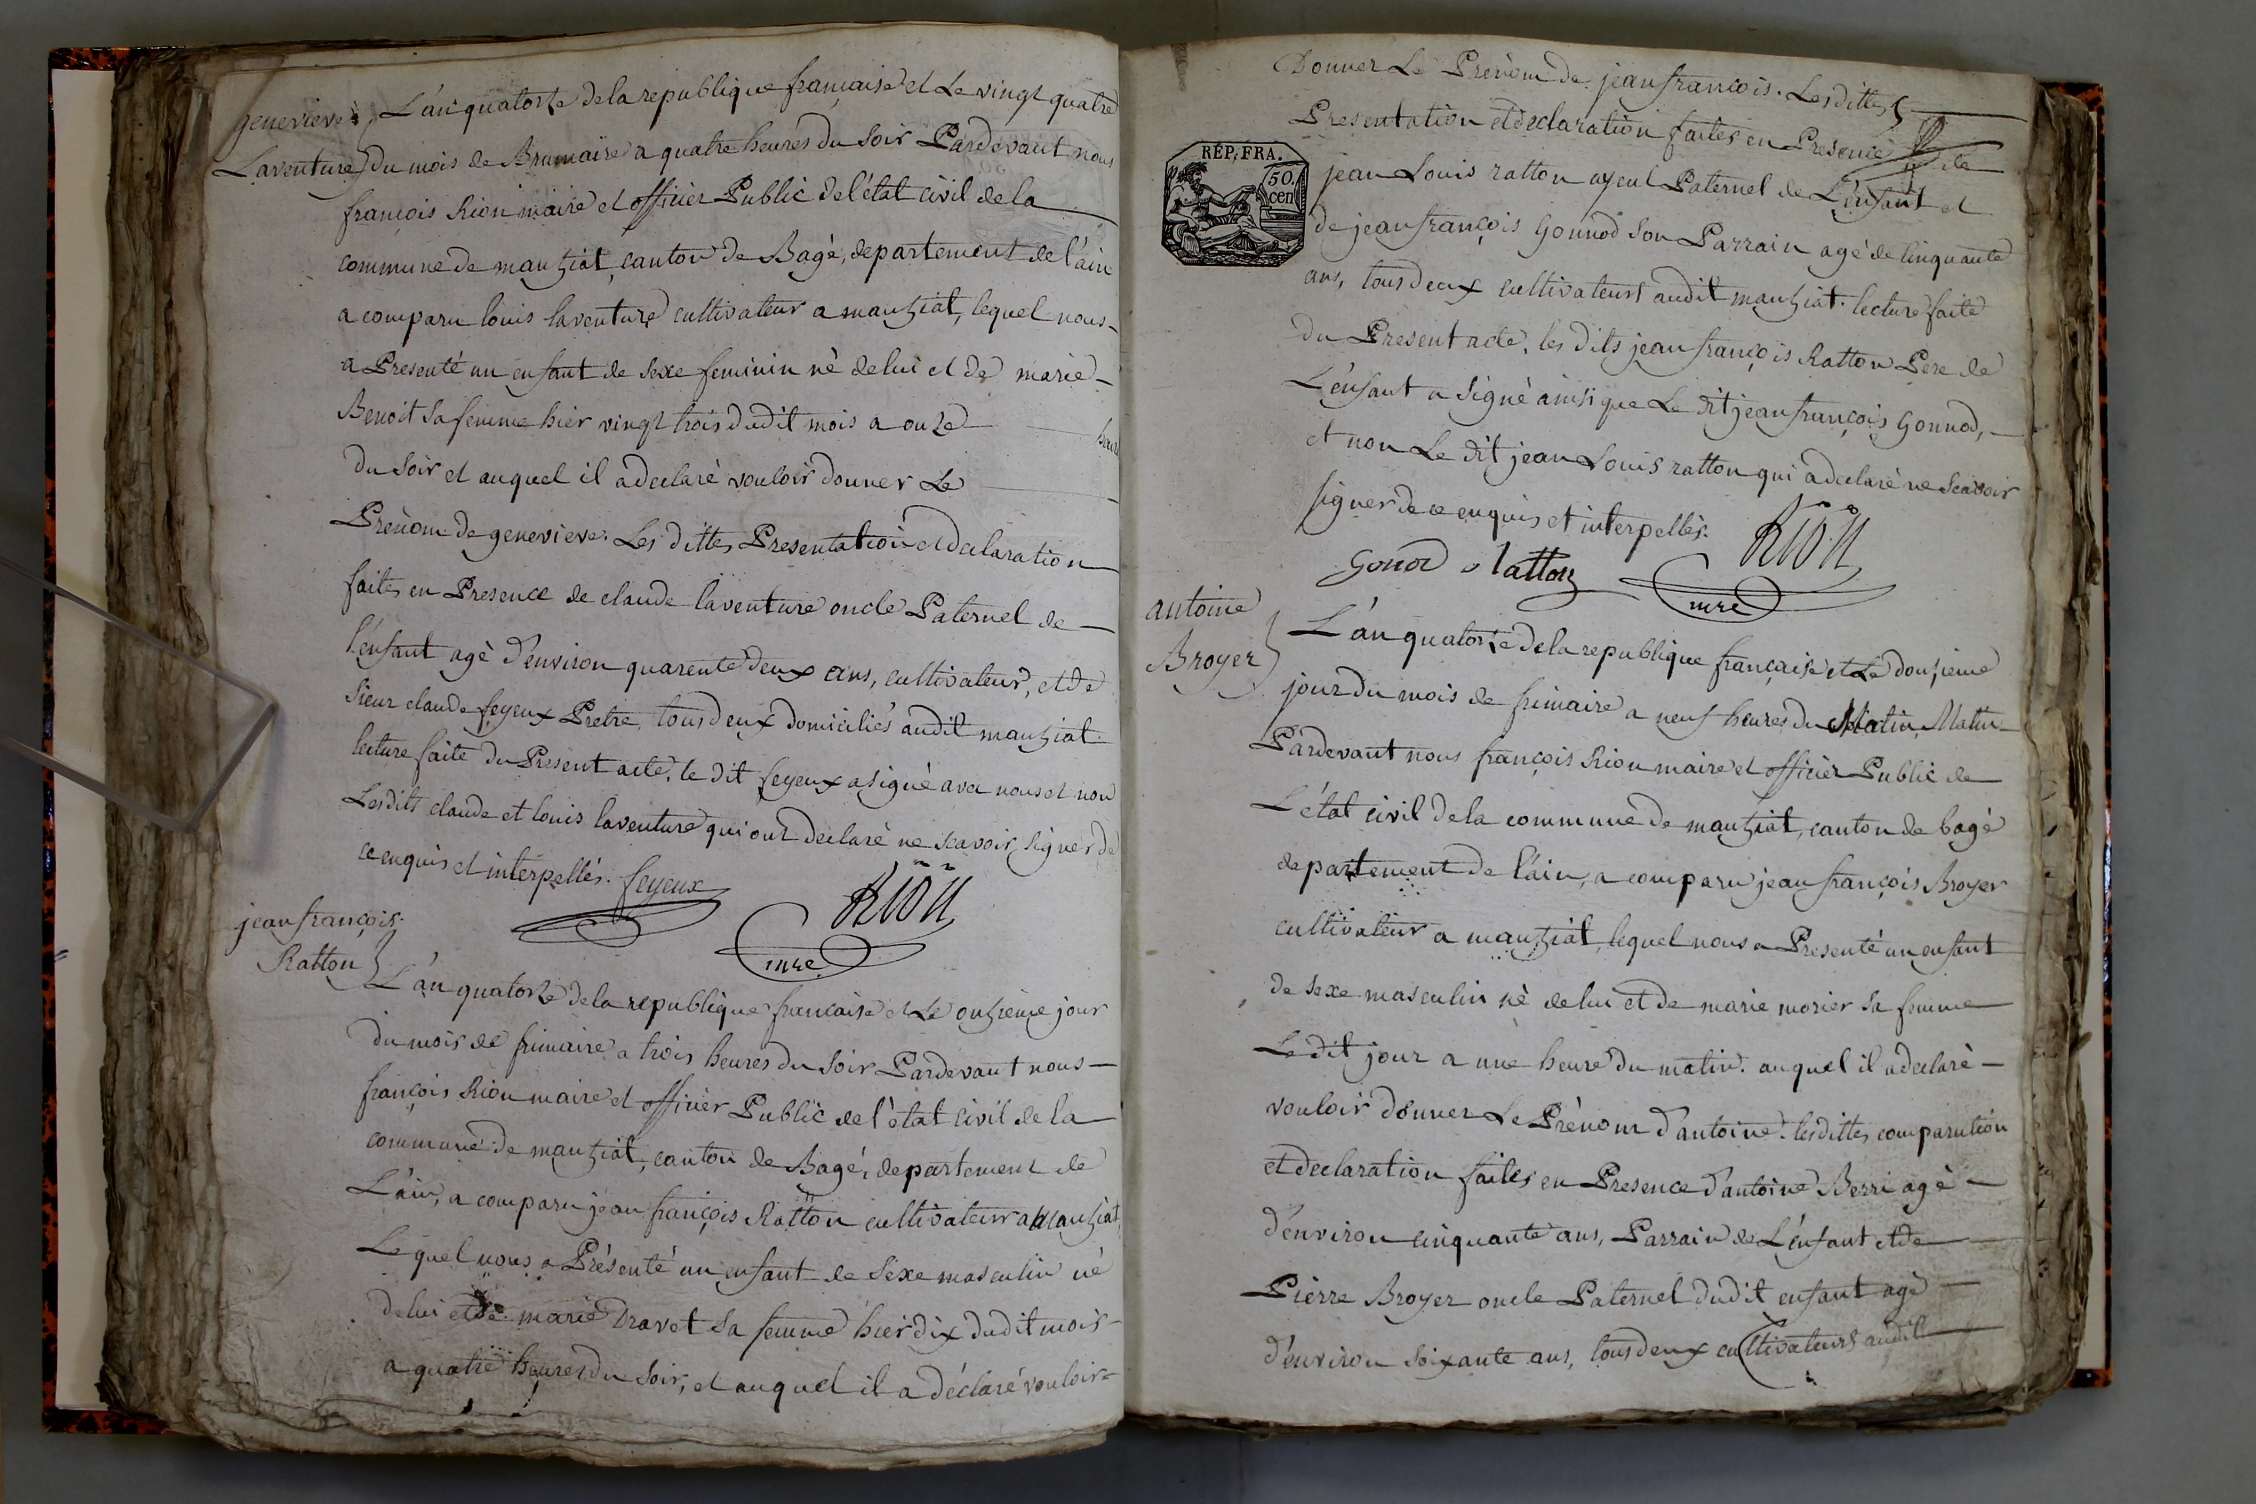 genevieve
Laventure
L'an quatorze de la republique française et Le vingt quatre
du mois de Brumaire a quatre heures du soir Pardevant nous
françois Rion maire et officier Public de l'état civil de la
commune de mantziat, canton de Bagé, departement de l'ain
a comparu louis laventure cultivateur a mantziat, lequel nous
a Presenté un enfant de sexe feminin né de lui et de marie
Benoit sa femme hier vingt trois dudit mois a onze
du soir et auquel il a declaré vouloir donner Le
Prènom de genevieve. Les dittes Presentation et declaration
faites en Presence de claude laventure oncle Paternel de
l'enfant agè d'environ quarente deux ans, cultivateur, et de
sieur claude feyeux Pretre, tous deux domiciliés audit mantziat.
lecture faite du Present acte, le dit feyeux a signé avec nous et non
Les dits claude et louis laventure qui ont declaré ne scavoir signer de
ce enquis et interpellés. feyeux
Rion
mre
jean françois
Ratton
L'an quatorze de la republique française et Le onzieme jour
du mois de frimaire a trois heures du soir Pardevant nous
françois Rion maire et officier Public de l'état civil de la
commune de mantziat, canton de Bagé, departement de
L'ain, a comparu jean françois Ratton cultivateur a Mantziat,
Lequel nous a Présenté un enfant de sexe masculin né
de lui et de marie Dravet sa femme hier dix dudit mois
a quatre heures du soir, et auquel il a déclaré vouloir
Donner Le Prenom de jean françois. Les dittes
Presentation et declaration faites en Presence de
REP. FRA.
50.
cen
jean Louis ratton ayeul Paternel de L'enfant et
de jean françois Gonnod son Parrain agé de cinquante
ans, tous deux cultivateurs audit mantziat. lecture faite
du Present acte, les dits jean françois Ratton Pere de
L'enfant a signé ainsi que Le dit jean françois Gonnod,
et non Le dit jean Louis ratton qui a declaré ne scavoir
signer de ce enquis et interpellés.
Gonod Ratton
Rion
mre
antoine
Broyer
L'an quatorze de la republique française et Le douzieme
jour du mois de frimaire a neuf heures du Matin Matin
Pardevant nous françois Rion maire et officier Public de
L'état civil de la commune de mantziat, canton de bagé
departement de l'ain, a comparu jean françois Broyer
cultivateur a mantziat, lequel nous a Presenté un enfant
de sexe masculin né de lui et de marie morier sa femme
Le dit jour a une heure du matin. auquel il a declaré
vouloir donner Le Prènom d'antoine. les dittes comparution
et declaration faites en Presence d'antoine Berri agé
d'environ cinquante ans, Parrain de L'enfant et de
Pierre Broyer oncle Paternel dudit enfant agé
d'environ soixante ans, tous deux cultivateurs audit